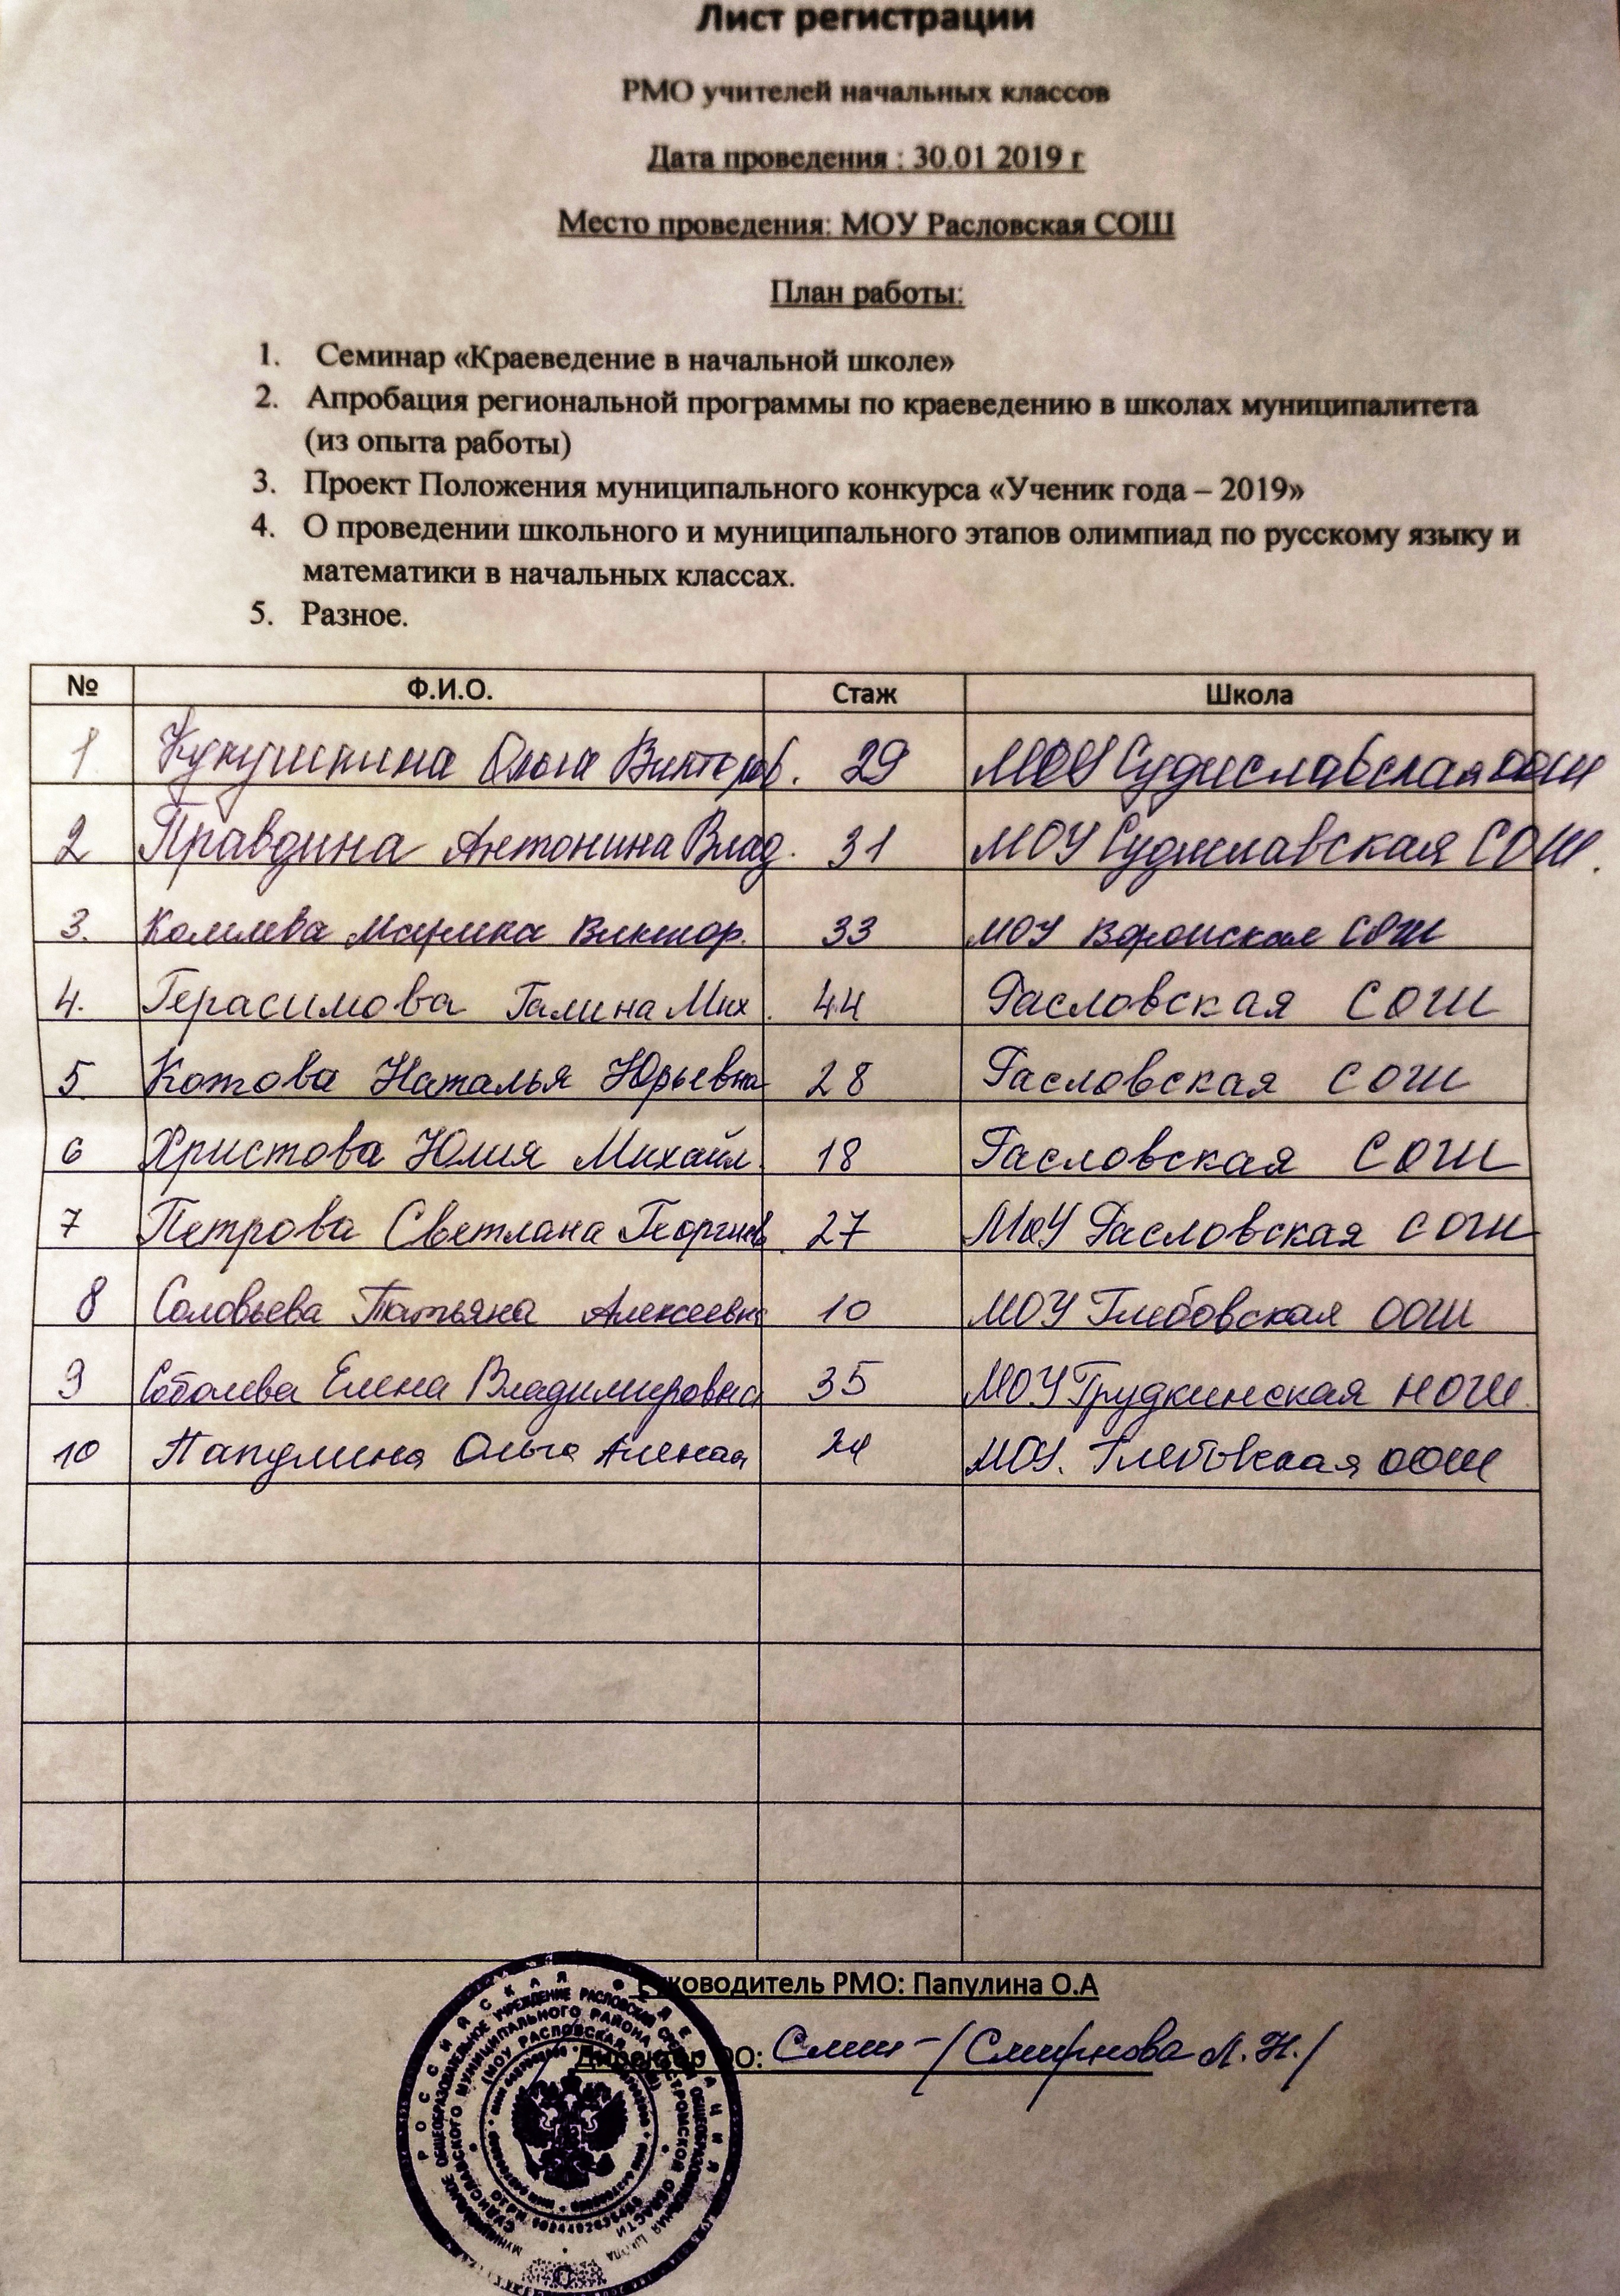 Лист регистрации
РМО учителей начальных классов
Дата проведения : 30.01 2019 г
Место проведения: МОУ Расловская СОШ
План работы:
1. Семинар «Краеведение в начальной школе»
2. Апробация региональной программы по краеведению в школах муниципалитета
(из опыта работы)
3. Проект Положения муниципального конкурса «Ученик года – 2019»
4. О проведении школьного и муниципального этапов олимпиад по русскому языку и
математики в начальных классах.
5. Разное.
№ Ф.И.О. Стаж Школа
1 Кукушкина Ольга Викторов. 29 МОУ Судиславская ООШ
2 Правдина Антонина Влад. 31 МОУ Судиславская СОШ.
3. Марина Виктор. 33 МОУ Воронская СОШ
4. Герасимова Галина Мих. 44 Расловская СОШ
5. Котова Наталья Юрьевна 28 Расловская СОШ
6 Христова Юлия Михайл. 18 Расловская СОШ
7 Петрова Светлана Георгиев. 27 МОУ Расловская СОШ
8 Соловьева Татьяна Алексеевна 10 МОУ Глебовская ООШ
9 Соболева Елена Владимировна 35 МОУ Грудкинская НОШ
10 Папулина Ольга 24 МОУ. Глебовская ООШ
Руководитель РМО: Папулина О.А
Директор ОО: /Смирнова Л.Н./
РОССИЙСКАЯ ФЕДЕРАЦИЯ